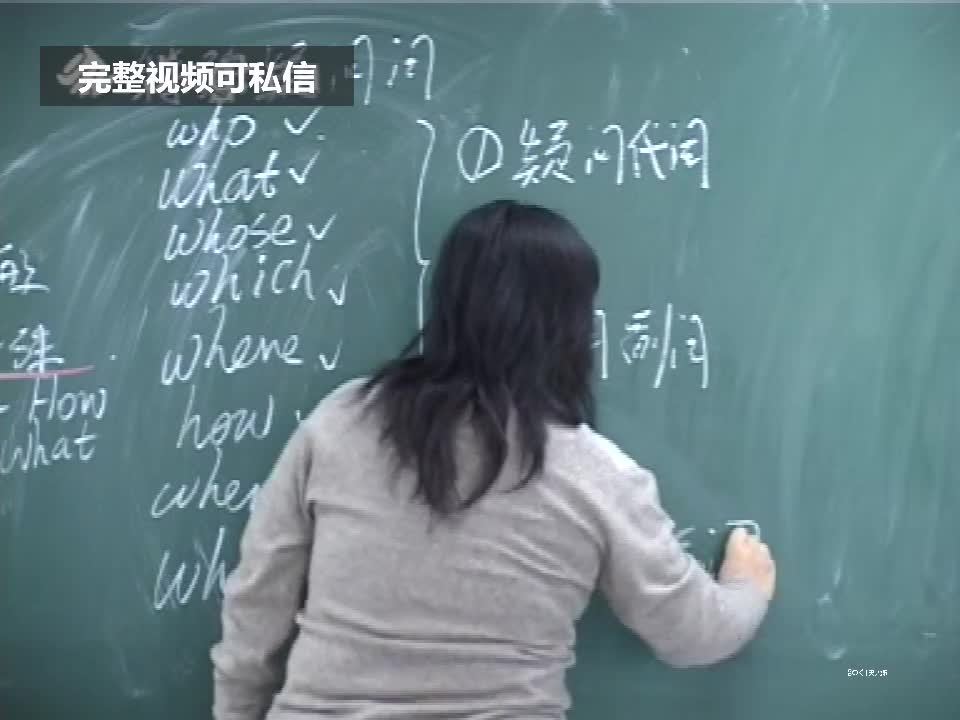 完整视频可私信
问词
who ✓
what ✓
whose ✓
which ✓
where ✓
how
whe
wh
① 疑问代词
副词
殊
How
What
词